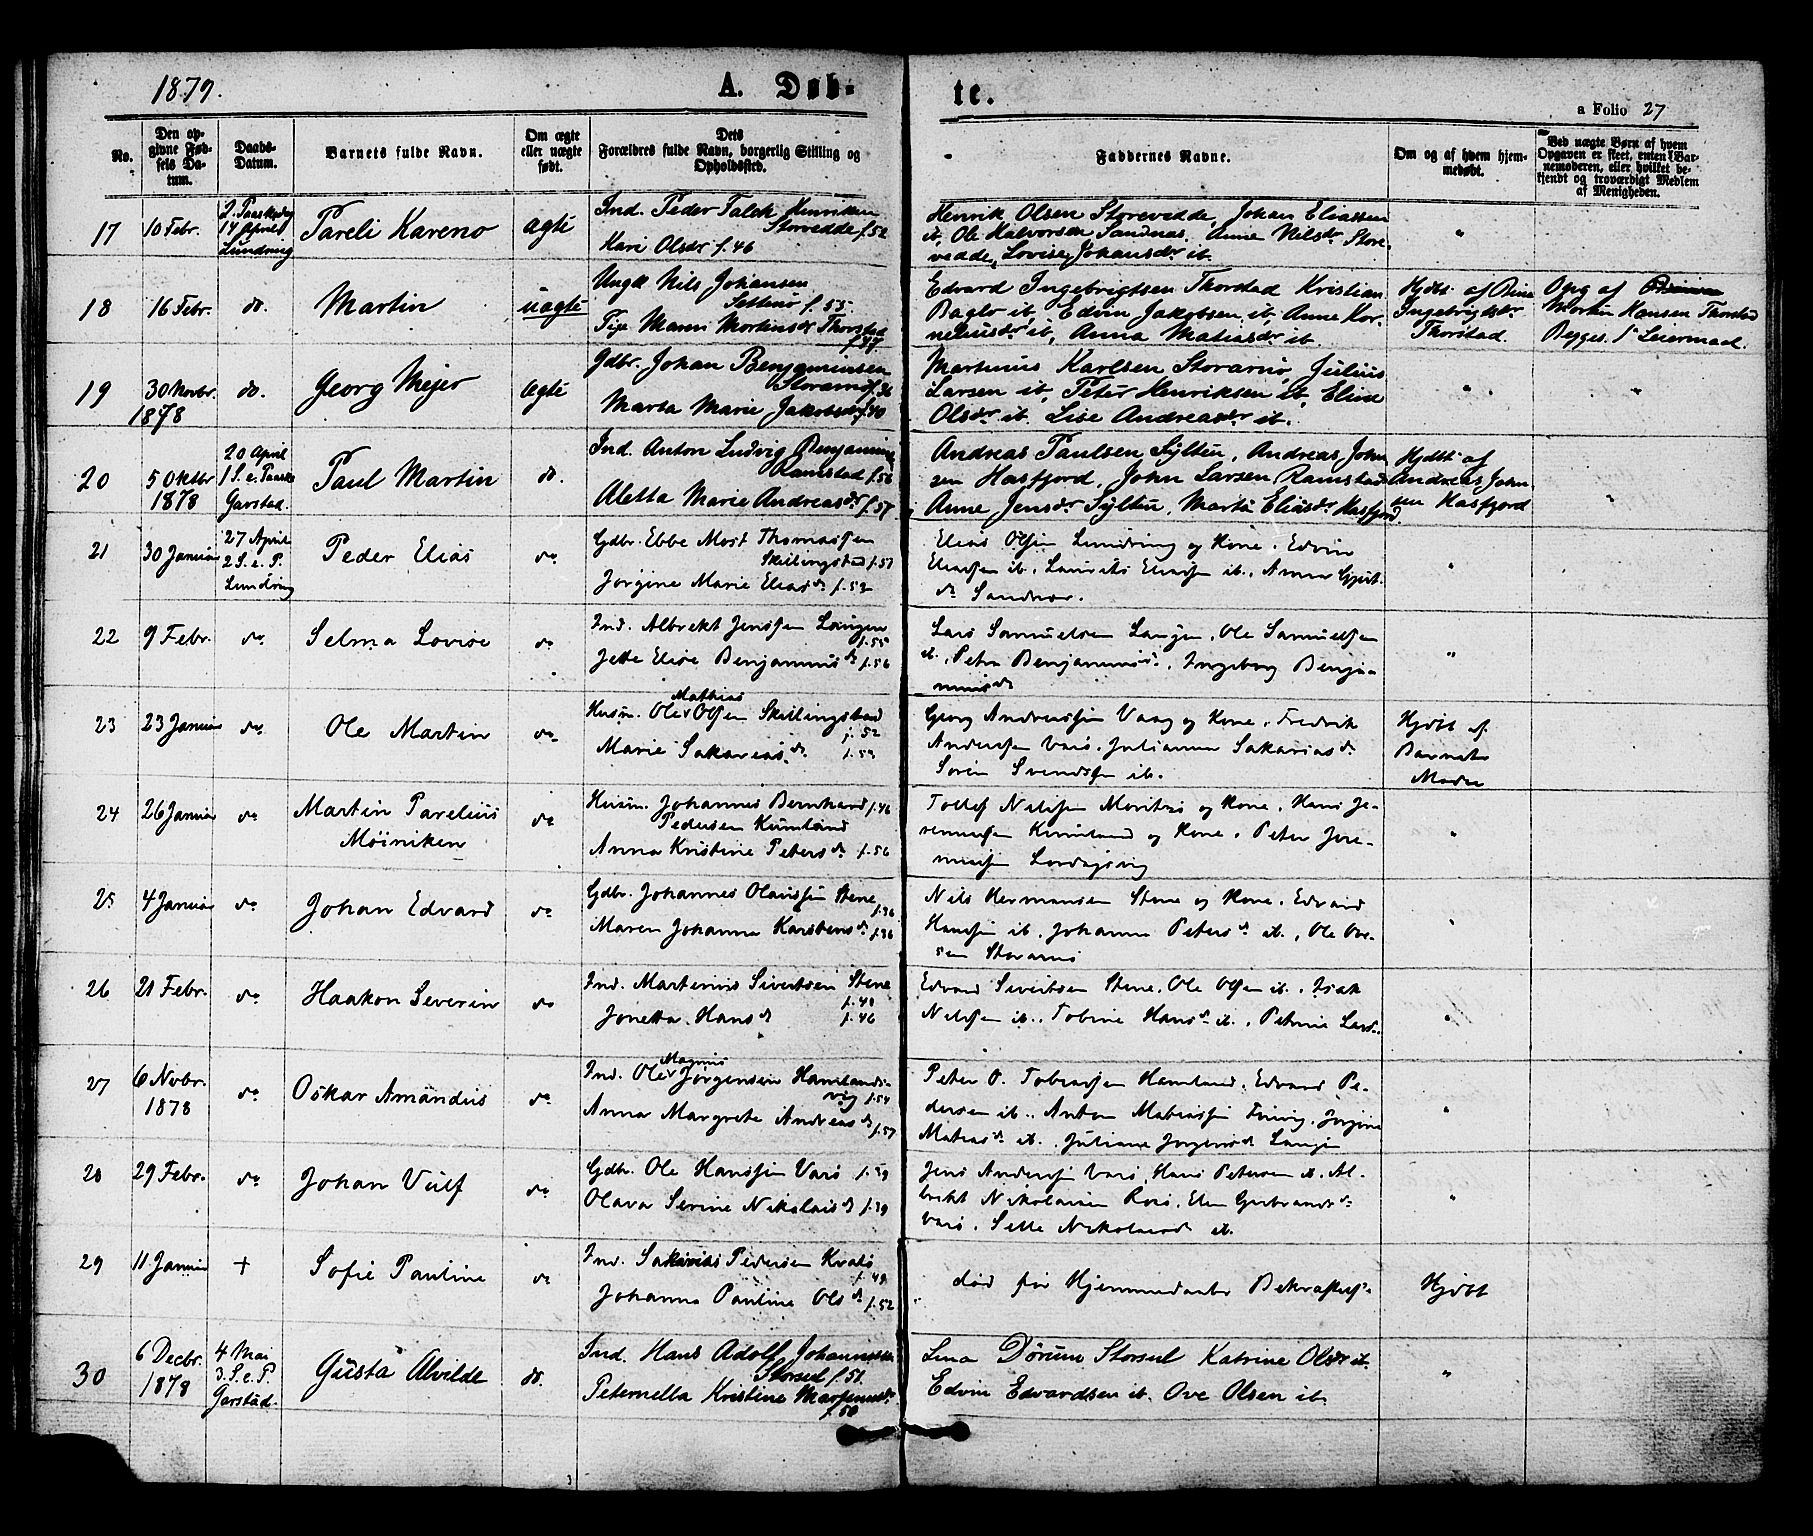 1879.
A. Døb-
te.
a Folio 27
No.
Den op-
givne Fød-
sels Da-
tum.
Daabs-
Datum.
Barnets fulde Navn.
Om ægte
eller uægte
født.
Dets
Forældres fulde Navn, borgerlig Stilling og
Opholdssted.
Faddernes Navne.
Om og af hvem hjem-
medøbt.
Ved uægte Børn af hvem
Opgaven er skeet, enten Bar-
nemoderen, eller hvilket be-
kjendt og troværdigt Medlem
af Menigheden.
17
10 Febr.
2. Paaskedag
14 April
Lundring
Pareli Kareno
ægte
Ind. Peder Falck Henriksen
Storvedde f.52
Kari Olsdr f.46
Henrik Olsen Storevedde, Johan Eliassen
ib, Ole Halvorsen Sandnæs, Anne Nilsdr Store-
vedde, Lovise Johansdr ib.
"
18
16 Febr.
do.
Martin
uægte
Ungk Nils Johansen
f. 55
Pige Maren Mortinsdr Thorstad
f.47
Edvard Ingebrigtsen Thorstad Kristian
ib, Edvin Jakobsen ib, Anne Kor-
neliusdr ib, Anna Matiasdr ib.
Hjdbt. af
Ingebrigtsdr
Thorstad.
Opg af
Morten Hansen Thorstad
Begges 1ste Leiermaal.
19
30 Novbr.
1878
do.
Georg Mejer
ægte
Gdbr. Johan Benjaminsen
Storarnø f.36
Marta Marie Jakobsdr f.40
Martinus Karlsen Storarnø, Julius
Larsen ib, Peter Henriksen ib, Eline
Olsdr ib. Lise Andreasdr ib.
"
"
20
5 Oktbr
1878
20 April
1 S. e. Paaske
Garstad.
Paul Martin
do.
Ind. Anton Ludvig Benjamins
Ramstad f.56
Aletta Marie Andreasdr f.57
Andreas Paulsen Sylten, Andreas John-
sen Hasfjord, John Larsen Ramstad
Anne Jensdr Sylten, Marta Eliasdr Hasfjord.
Hjdbt. af
Andreas John-
sen Hasfjord
"
21
30 Januar
27 April
2 S. e. P.
Lundring
Peder Elias
do
Gdbr. Ebbe Most Thomassen
Skillingstad f.57
Jørgine Marie Eliasdr f.52
Elias Olsen Lundring og Kone, Edvin
Eliassen ib., Laurits Eliassen ib., Anna
dr Sandnæs.
"
22
9 Febr.
do
Selma Lovise
do
Ind. Albrekt Jenssen Langen
f.55
Jette Elise Benjaminsdr f.56
Lars Samuelsen Langen, Ole Samuelsen
ib., Petra Benjaminsdr, Ingeborg Benja-
minsdr
"
23
23 Januar
do
Ole Martin
do
Mathias
Husm. Ole Olsen Skillingstad
f.52
Marie Sakariasdr f.59
Georg Andreassen Vaag og Kone, Fredrik
Andersen Varø, Julianna Sakariasdr
Soren Svendsen ib.
Hjdbt af
Barnets
Moder
24
26 Januar
do
Martin Parelius
Möiniken
do
Husm. Johannes Bernhard f.46
Pedersen Kumland
Anna Kristine Petersdr f.56
Tollef Nilssen og Kone, Hans Je-
remiassen Kumland og Kone, Peter Jere-
miassen
"
25
4 Januar
do
Johan Edvard
do
Gdbr. Johannes Olaussen Stene
f.36
Maren Johanna Karstensdr f.36
Nils Hermansen Stene og Kone, Edvard
Hanssen ib., Johanna Petersdr ib., Ole
sen Storarnø
"
26
21 Febr.
do
Haakon Severin
do
Ind. Martinus Sivertsen Stene
f.40
Jonetta Hansdr f.46
Edvard Sivertsen Stene, Ole Olsen ib., Isak
Nilssen ib., Tobine Hansdr ib., Petrine Larsdr.
"
27
6 Novbr.
1878
do
Oskar Amandus
do
Magnus
Ind. Ole Jørgensen Hamlands-
vig f.54
Anna Margrete Andreasdr f.57
Peter O. Tobiassen Hamland, Edvard Pe-
dersen ib., Anton Matiassen Finvig, Jørgine
Matiasdr ib., Juliane Jørgensdr Langen
"
28
29 Febr.
do
Johan Vulf
do
Gdbr. Ole Hanssen Varø f.39
Olava Serine Nikolaisdr f.39
Jens Andersen Varø, Hans Petersen ib. Al-
brikt Nikolaisen Rorø, Elen Gerbrandsdr
Varø, Nikolaisdr ib.
"
29
11 Januar
+
Sofie Pauline
do
Ind. Sakarias Pedersen Kvalø
f.49
Johanna Pauline Olsdr f.52
død før Hjemmedaabs Bekræftelse
Hjdbt
30
6 Decbr.
1878
4 Mai
3. S. e. P.
Garstad.
Gusta Alvilde
do.
Ind. Hans Adolf Johannessen
Storsul f.51.
Peternella Kristine
f.50
Lina Dørum Storsul Katrine Olsdr ib.
Edvin Edvardsen ib. Ove Olsen ib.
"